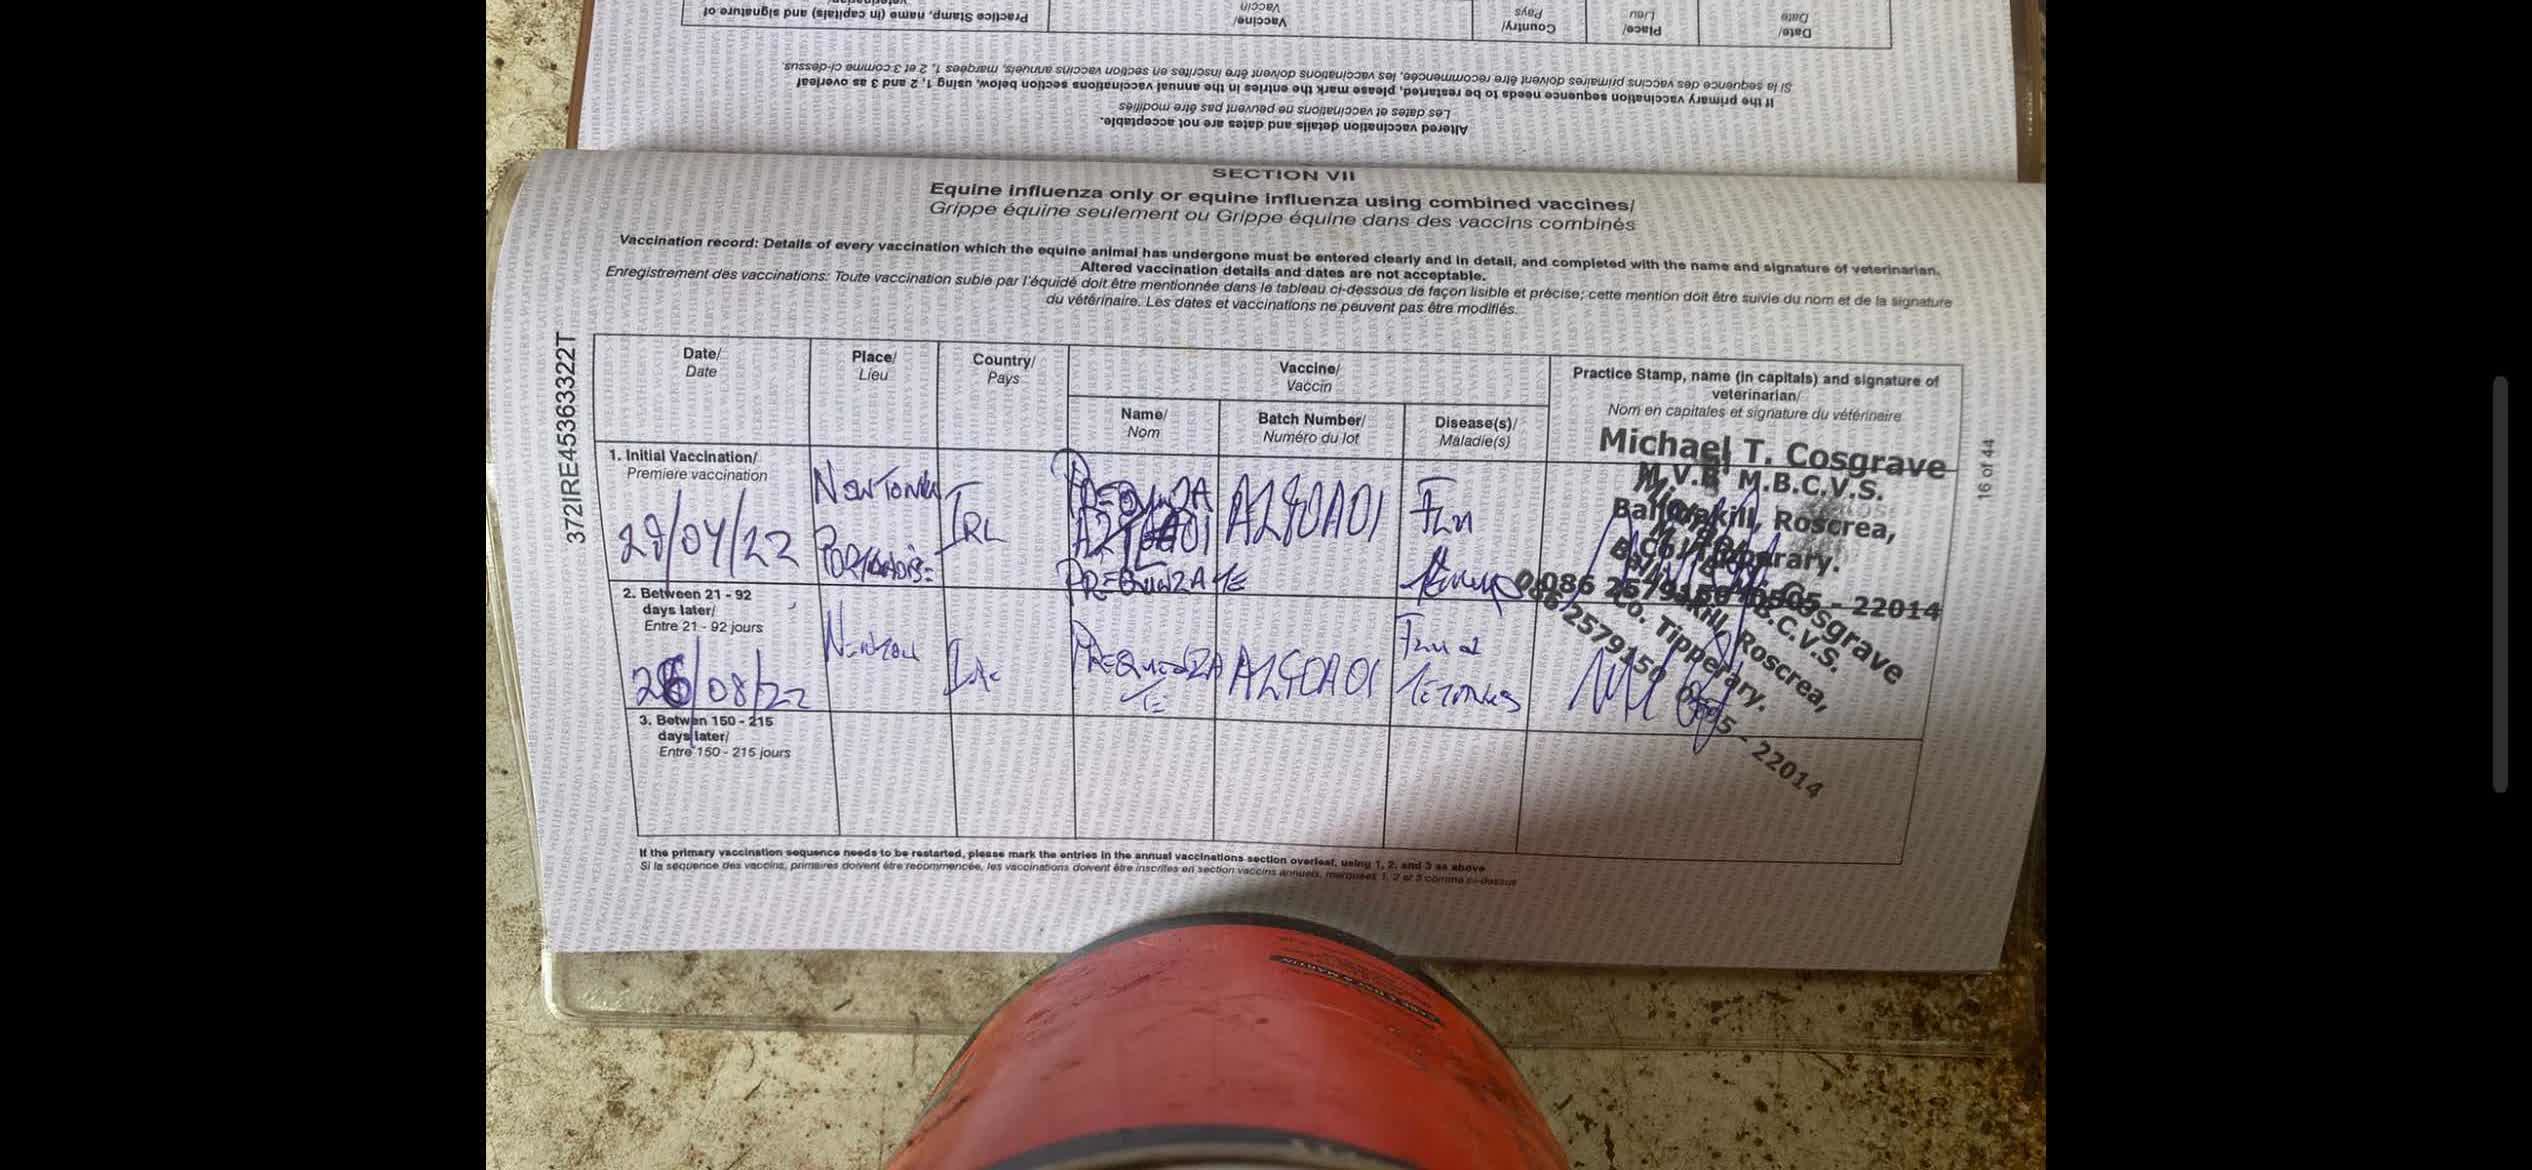 Practice Stamp, name (in capitals) and signature of
Vaccine/
Vaccin
Country/
Pays
Place/
Lieu
Date/
Date
Si la sequence des vaccins primaires doivent être recommencée, les vaccinations doivent être inscrites en section vaccins annuels, marquées 1, 2 et 3 comme ci-dessus.
If the primary vaccination sequence needs to be restarted, please mark the entries in the annual vaccinations section below, using 1, 2 and 3 as overleaf
Les dates et vaccinations ne peuvent pas être modifiés
Altered vaccination details and dates are not acceptable.
SECTION VII
Equine influenza only or equine influenza using combined vaccines/
Grippe équine seulement ou Grippe équine dans des vaccins combinés
Vaccination record: Details of every vaccination which the equine animal has undergone must be entered clearly and in detail, and completed with the name and signature of veterinarian.
Altered vaccination details and dates are not acceptable.
Enregistrement des vaccinations: Toute vaccination subie par l'équidé doit être mentionnée dans le tableau ci-dessous de façon lisible et précise; cette mention doit être suivie du nom et de la signature
du vétérinaire. Les dates et vaccinations ne peuvent pas être modifiés.
372IRE45363322T
16 of 44
Date/
Date
Place/
Lieu
Country/
Pays
Vaccine/
Vaccin
Name/
Nom
Batch Number/
Numéro du lot
Disease(s)/
Maladie(s)
Practice Stamp, name (in capitals) and signature of
veterinarian/
Nom en capitales et signature du vétérinaire
1. Initial Vaccination/
Premiere vaccination
/04/22
IRL
PREQUENZA TE
Flu
Michael T. Cosgrave
M.V.B. M.B.C.V.S.
Roscrea,
Co. Tipperary.
086 2579150 - 22014
2. Between 21 - 92
days later/
Entre 21 - 92 jours
/08/22
PREQUENZA
TE
Flu &
Tetanus
Cosgrave
B.C.V.S.
Roscrea,
Co. Tipperary.
086 2579150 0505 - 22014
3. Betwen 150 - 215
days later/
Entre 150 - 215 jours
If the primary vaccination sequence needs to be restarted, please mark the entries in the annual vaccinations section overleaf, using 1, 2, and 3 as above
Si la sequence des vaccins, primaires doivent être recommencée, les vaccinations doivent être inscrites en section vaccins annuels, marquées 1, 2 et 3 comme ci-dessus